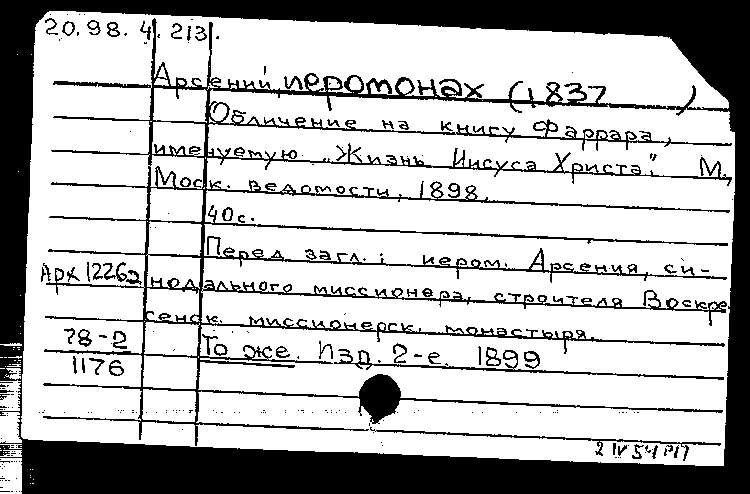 20.98.4.213.
Арсений, иеромонах (1837 )
Обличение на книгу Фаррара,
именуемую „Жизнь Иисуса Христа". М.,
Моск. ведомости, 1898.
40с.
Перед загл.: иером. Арсения, си-
Арх 12262 нодального миссионера, строителя Воскре
сенск. миссионерск. монастыря.
78-2 То же. Изд. 2-е. 1899
1176
2 IV 54